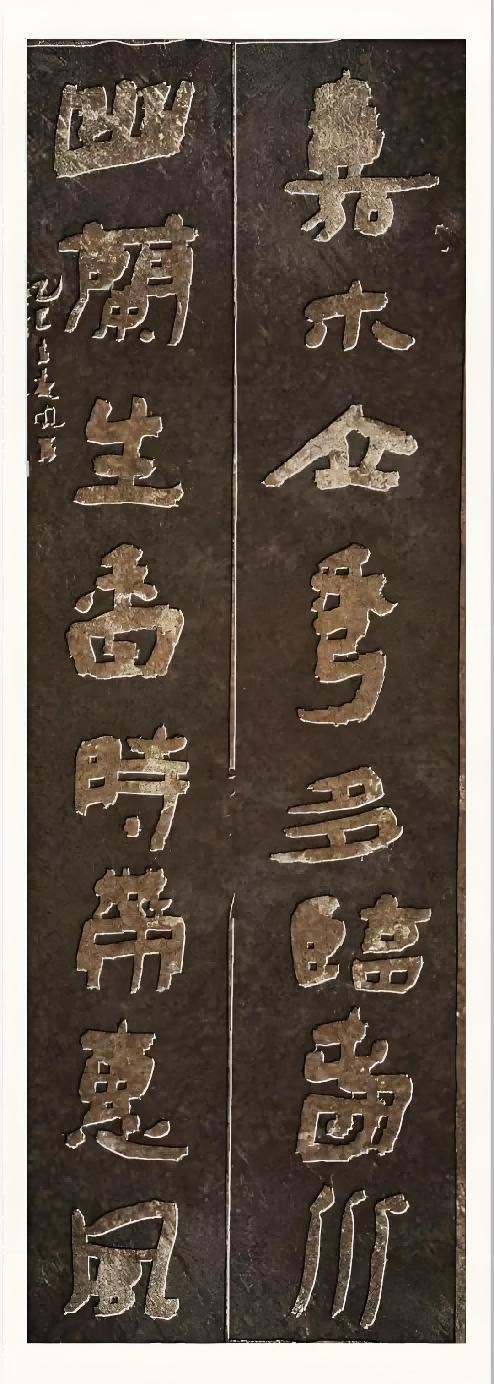 嘉木企秀多臨前川
幽蘭生香時帶惠風